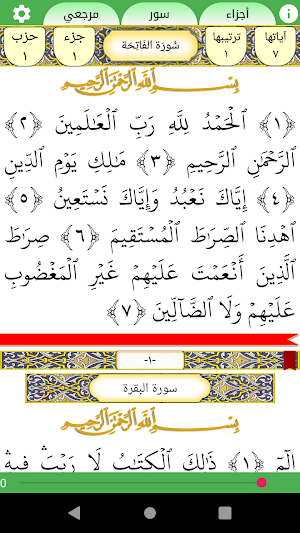 أجزاء سور مرجعي
آياتها ٧ ترتيبها ١ سُورَة الفَاتِحَة جزء ١ حزب ١
بِسْمِ ٱللَّهِ ٱلرَّحْمَٰنِ ٱلرَّحِيمِ
﴿١﴾ ٱلْحَمْدُ لِلَّهِ رَبِّ ٱلْعَـٰلَمِينَ ﴿٢﴾
ٱلرَّحْمَـٰنِ ٱلرَّحِيمِ ﴿٣﴾ مَـٰلِكِ يَوْمِ ٱلدِّينِ
﴿٤﴾ إِيَّاكَ نَعْبُدُ وَإِيَّاكَ نَسْتَعِينُ ﴿٥﴾
ٱهْدِنَا ٱلصِّرَٰطَ ٱلْمُسْتَقِيمَ ﴿٦﴾ صِرَٰطَ
ٱلَّذِينَ أَنْعَمْتَ عَلَيْهِمْ غَيْرِ ٱلْمَغْضُوبِ
عَلَيْهِمْ وَلَا ٱلضَّآلِّينَ ﴿٧﴾
-١-
سورة البقرة
بِسْمِ ٱللَّهِ ٱلرَّحْمَٰنِ ٱلرَّحِيمِ
الٓمٓ ﴿١﴾ ذَٰلِكَ ٱلْكِتَـٰبُ لَا رَيْبَ ۛ فِيهِ ۛ
0